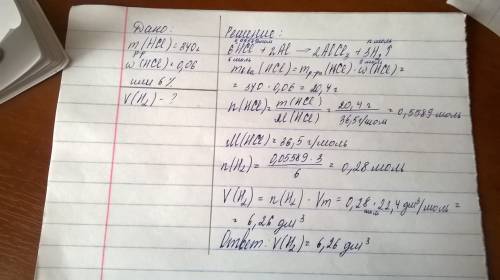 Дано:
m р-р (HCl)=340г
ω(HCl)=0,06
или 6%
V(H₂) - ?
Решение:
0,5589моль n моль
6HCl + 2Al → 2AlCl₃ + 3H₂↑
6 моль 3 моль
m в-ва (HCl) = m р-ра (HCl) · ω(HCl) =
= 340 · 0,06 = 20,4 г
n(HCl) = m(HCl) / M(HCl) = 20,4 г / 36,5 г/моль = 0,5589 моль
M(HCl) = 36,5 г/моль
n(H₂) = 0,05589 · 3 / 6 = 0,28 моль
V(H₂) = n(H₂) · Vm = 0,28 моль · 22,4 дм³/моль =
= 6,26 дм³
Ответ: V(H₂) = 6,26 дм³